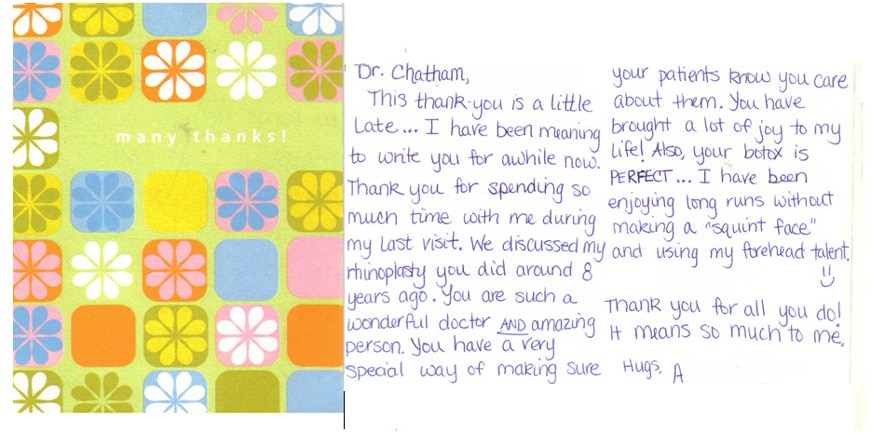 many thanks!
Dr. Chatham,
This thank-you is a little
Late... I have been meaning
to write you for awhile now.
Thank you for spending so
much time with me during
my last visit. We discussed my
rhinoplasty you did around 8
years ago. You are such a
wonderful doctor AND amazing
person. You have a very
special way of making sure
your patients know you care
about them. You have
brought a lot of joy to my
life! Also, your botox is
PERFECT... I have been
enjoying long runs without
making a "squint face"
and using my forehead talent.
Thank you for all you do!
It means so much to me.
Hugs, A